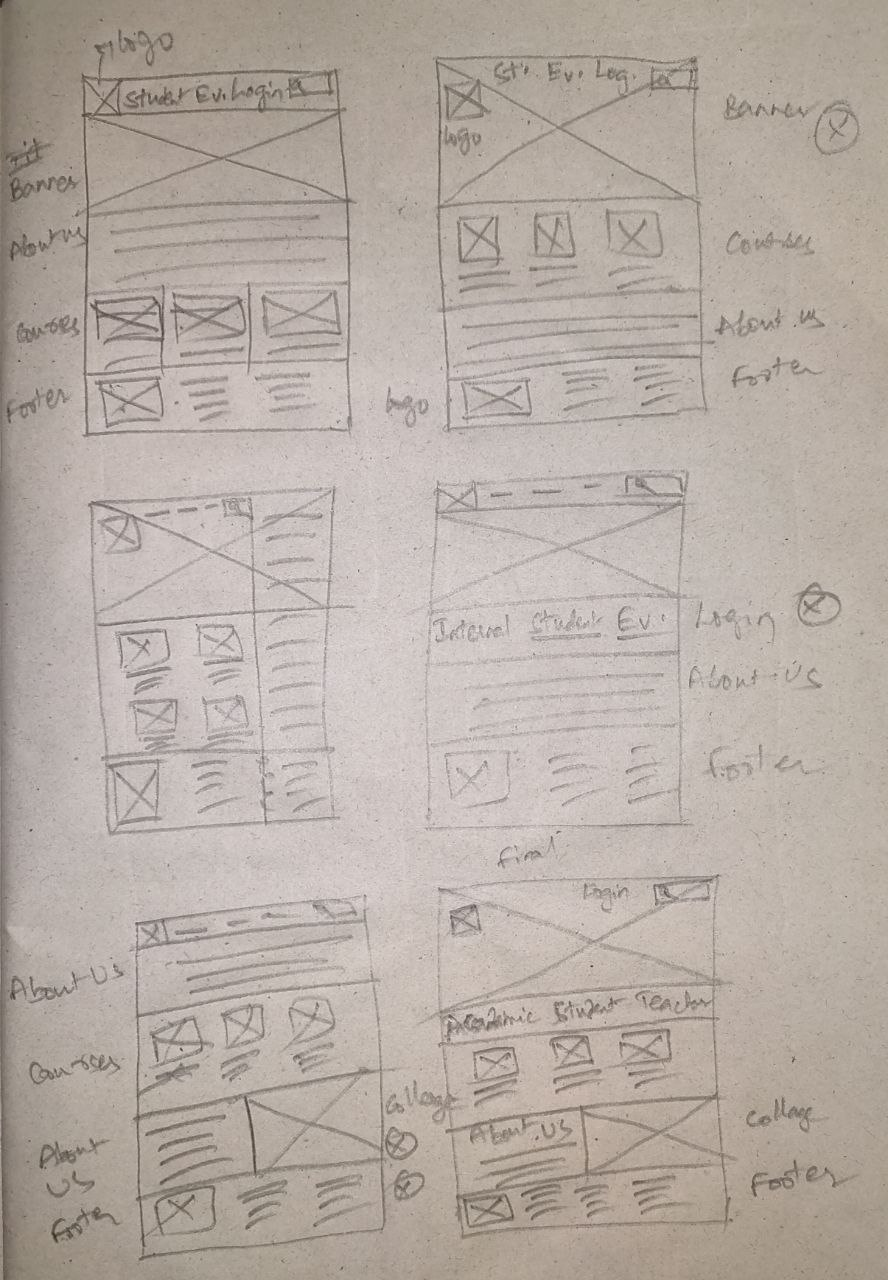 Logo
Student Ev. Login
Banner
About us
Courses
Footer
St. Ev. Log.
Logo
Banner
Courses
About us
Footer
Logo
Internal Student Ev. Login
About us
Footer
final
About Us
Courses
About
us
College
Footer
Login
Academic Student Teacher
About us
College
Footer